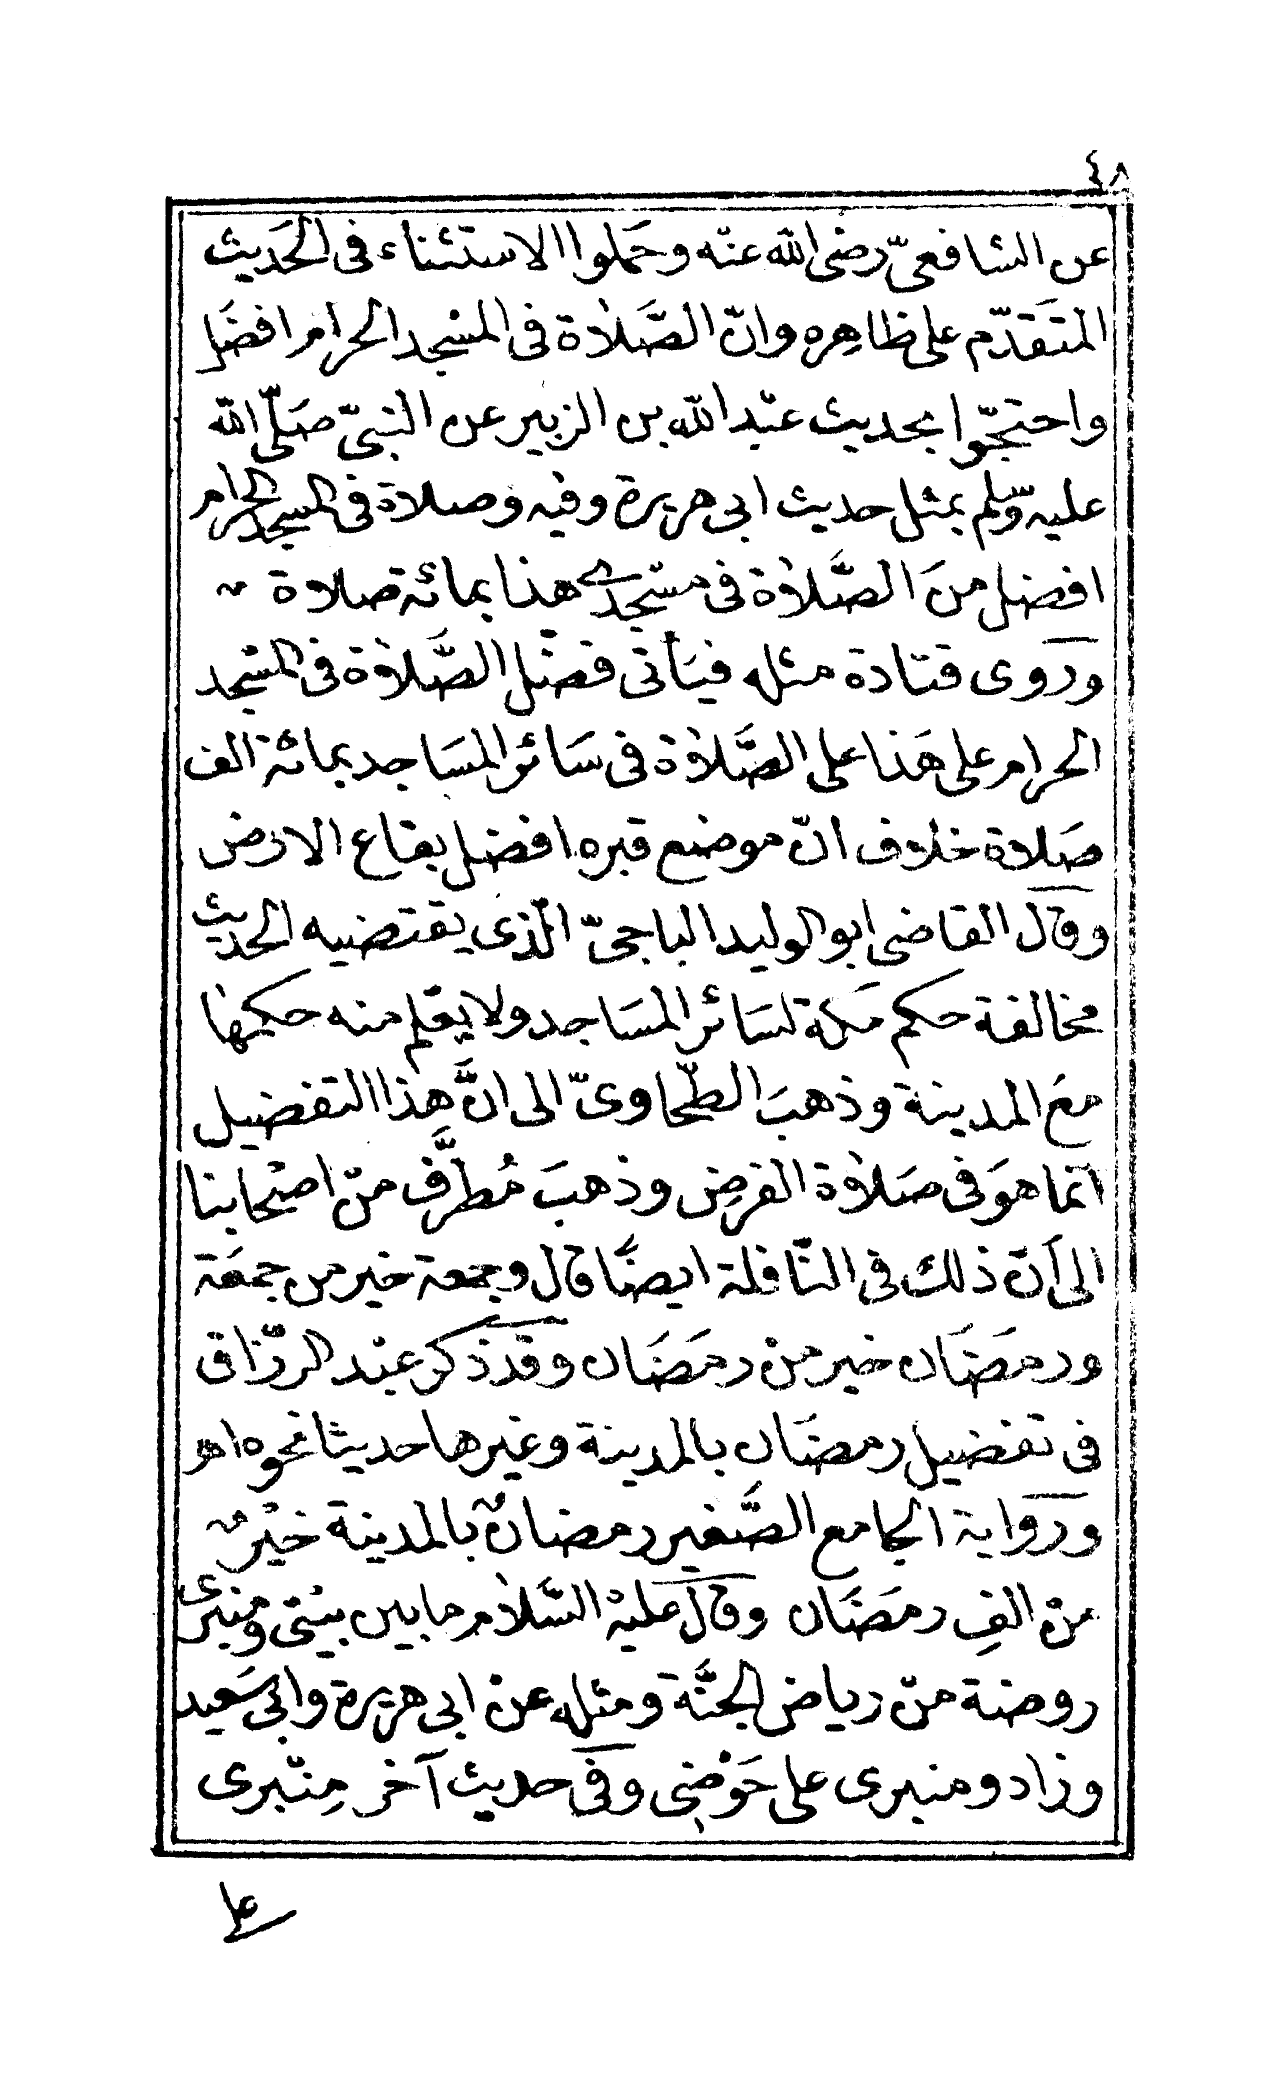 ٤٨
عن الشافعىّ رضى الله عنه وحَملوا الاستثناء فى الحَديث
المتَقدّم على ظاهِره وانّ الصَّلاة فى المسْجد الحرام افضَل
واحتجّوا بحديث عبْد الله بن الزبير عن النبىّ صَلّى الله
عليه وسّلم بمثل حديث ابى هريرة وفيه وصلاة فى المسجد الحرام
افضل منَ الصَّلاة فى مسْجدى هذا بمائة صلاة
وروى قتادة مثله فيَأتى فضْل الصَّلاة فى المسْجد
الحرام على هَذا على الصَّلاة فى سَائر المسَاجد بمائة الف
صَلاة خلاف انّ موضع قبره افضل بقاع الارض
وقال القاضى ابو الوليد الباجىّ الّذى يقتضيه الحديث
مخالفة حكم مَكة لسَائر المسَاجد ولا يعْلم منه حكمها
معَ المدينة وذهبَ الطّحاوىّ الى انَّ هذا التفضيل
انّما هوَ فى صَلاة الفرض وذهبَ مُطرَّف منْ اصْحابنا
الى أنّ ذلك فى النّافلة ايضًا قال وجمعة خير من جمعَة
ورمضَان خير منْ رمَضَان وقد ذكر عبْد الرزّاق
فى تفضيل رمضَان بالمدينة وغيرها حديثا نحوه اهـ
ورواية الجامع الصَّغير رمضانُ بالمدينة خيْر
منْ الفِ رمَضَان وقال عليْه السَّلام ما بين بيْتى ومنبرى
روضة منْ رياض الجنَّة ومثله عنْ ابى هريرة وابى سَعيد
وزاد ومنبرى على حَوْضى وفى حديث آخر مِنْبرى
على